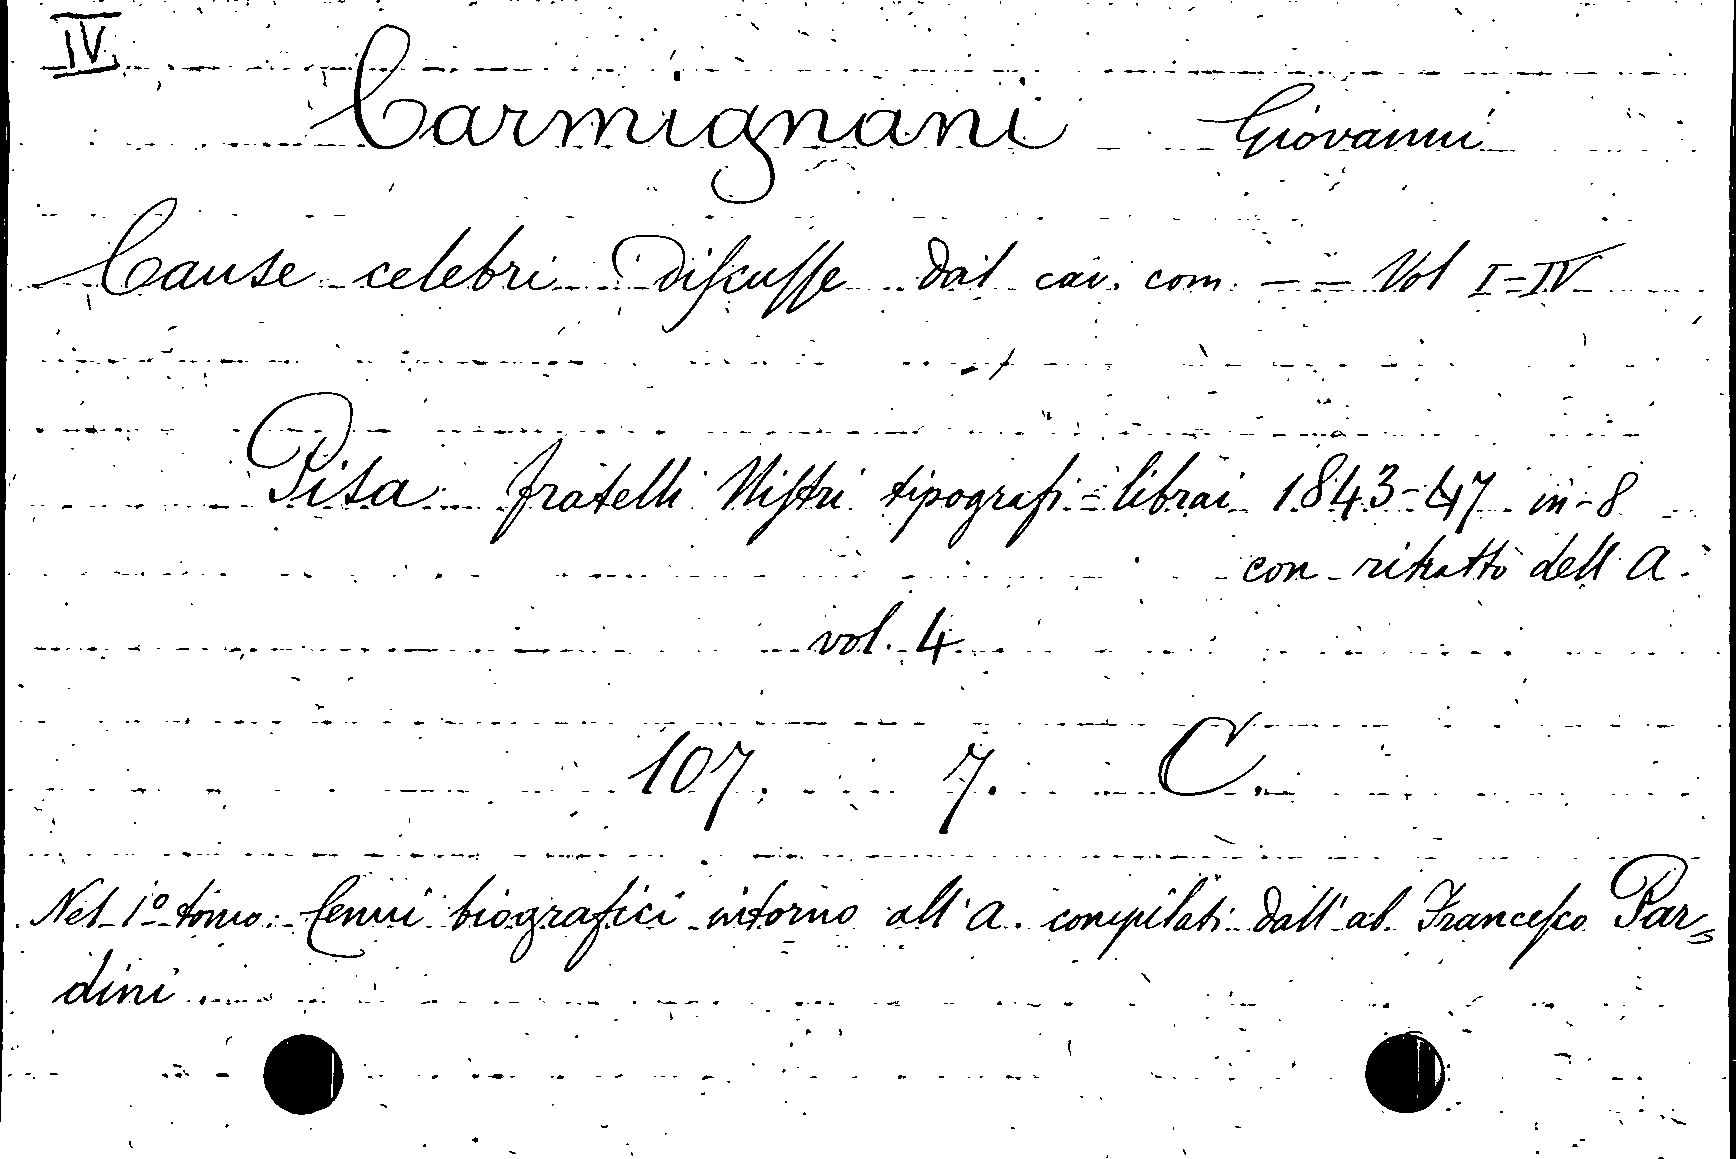 IV
Carmignani Giovanni
Cause celebri discusse dal cav. com. – – Vol I–IV
Pisa fratelli Nistri tipografi-librai 1843-47 in-8
con ritratto dell'A.
vol. 4
107. 7. C.
Nel 1º tomo: Cenni biografici intorno all'A. compilati dall'ab. Francesco Par=
dini